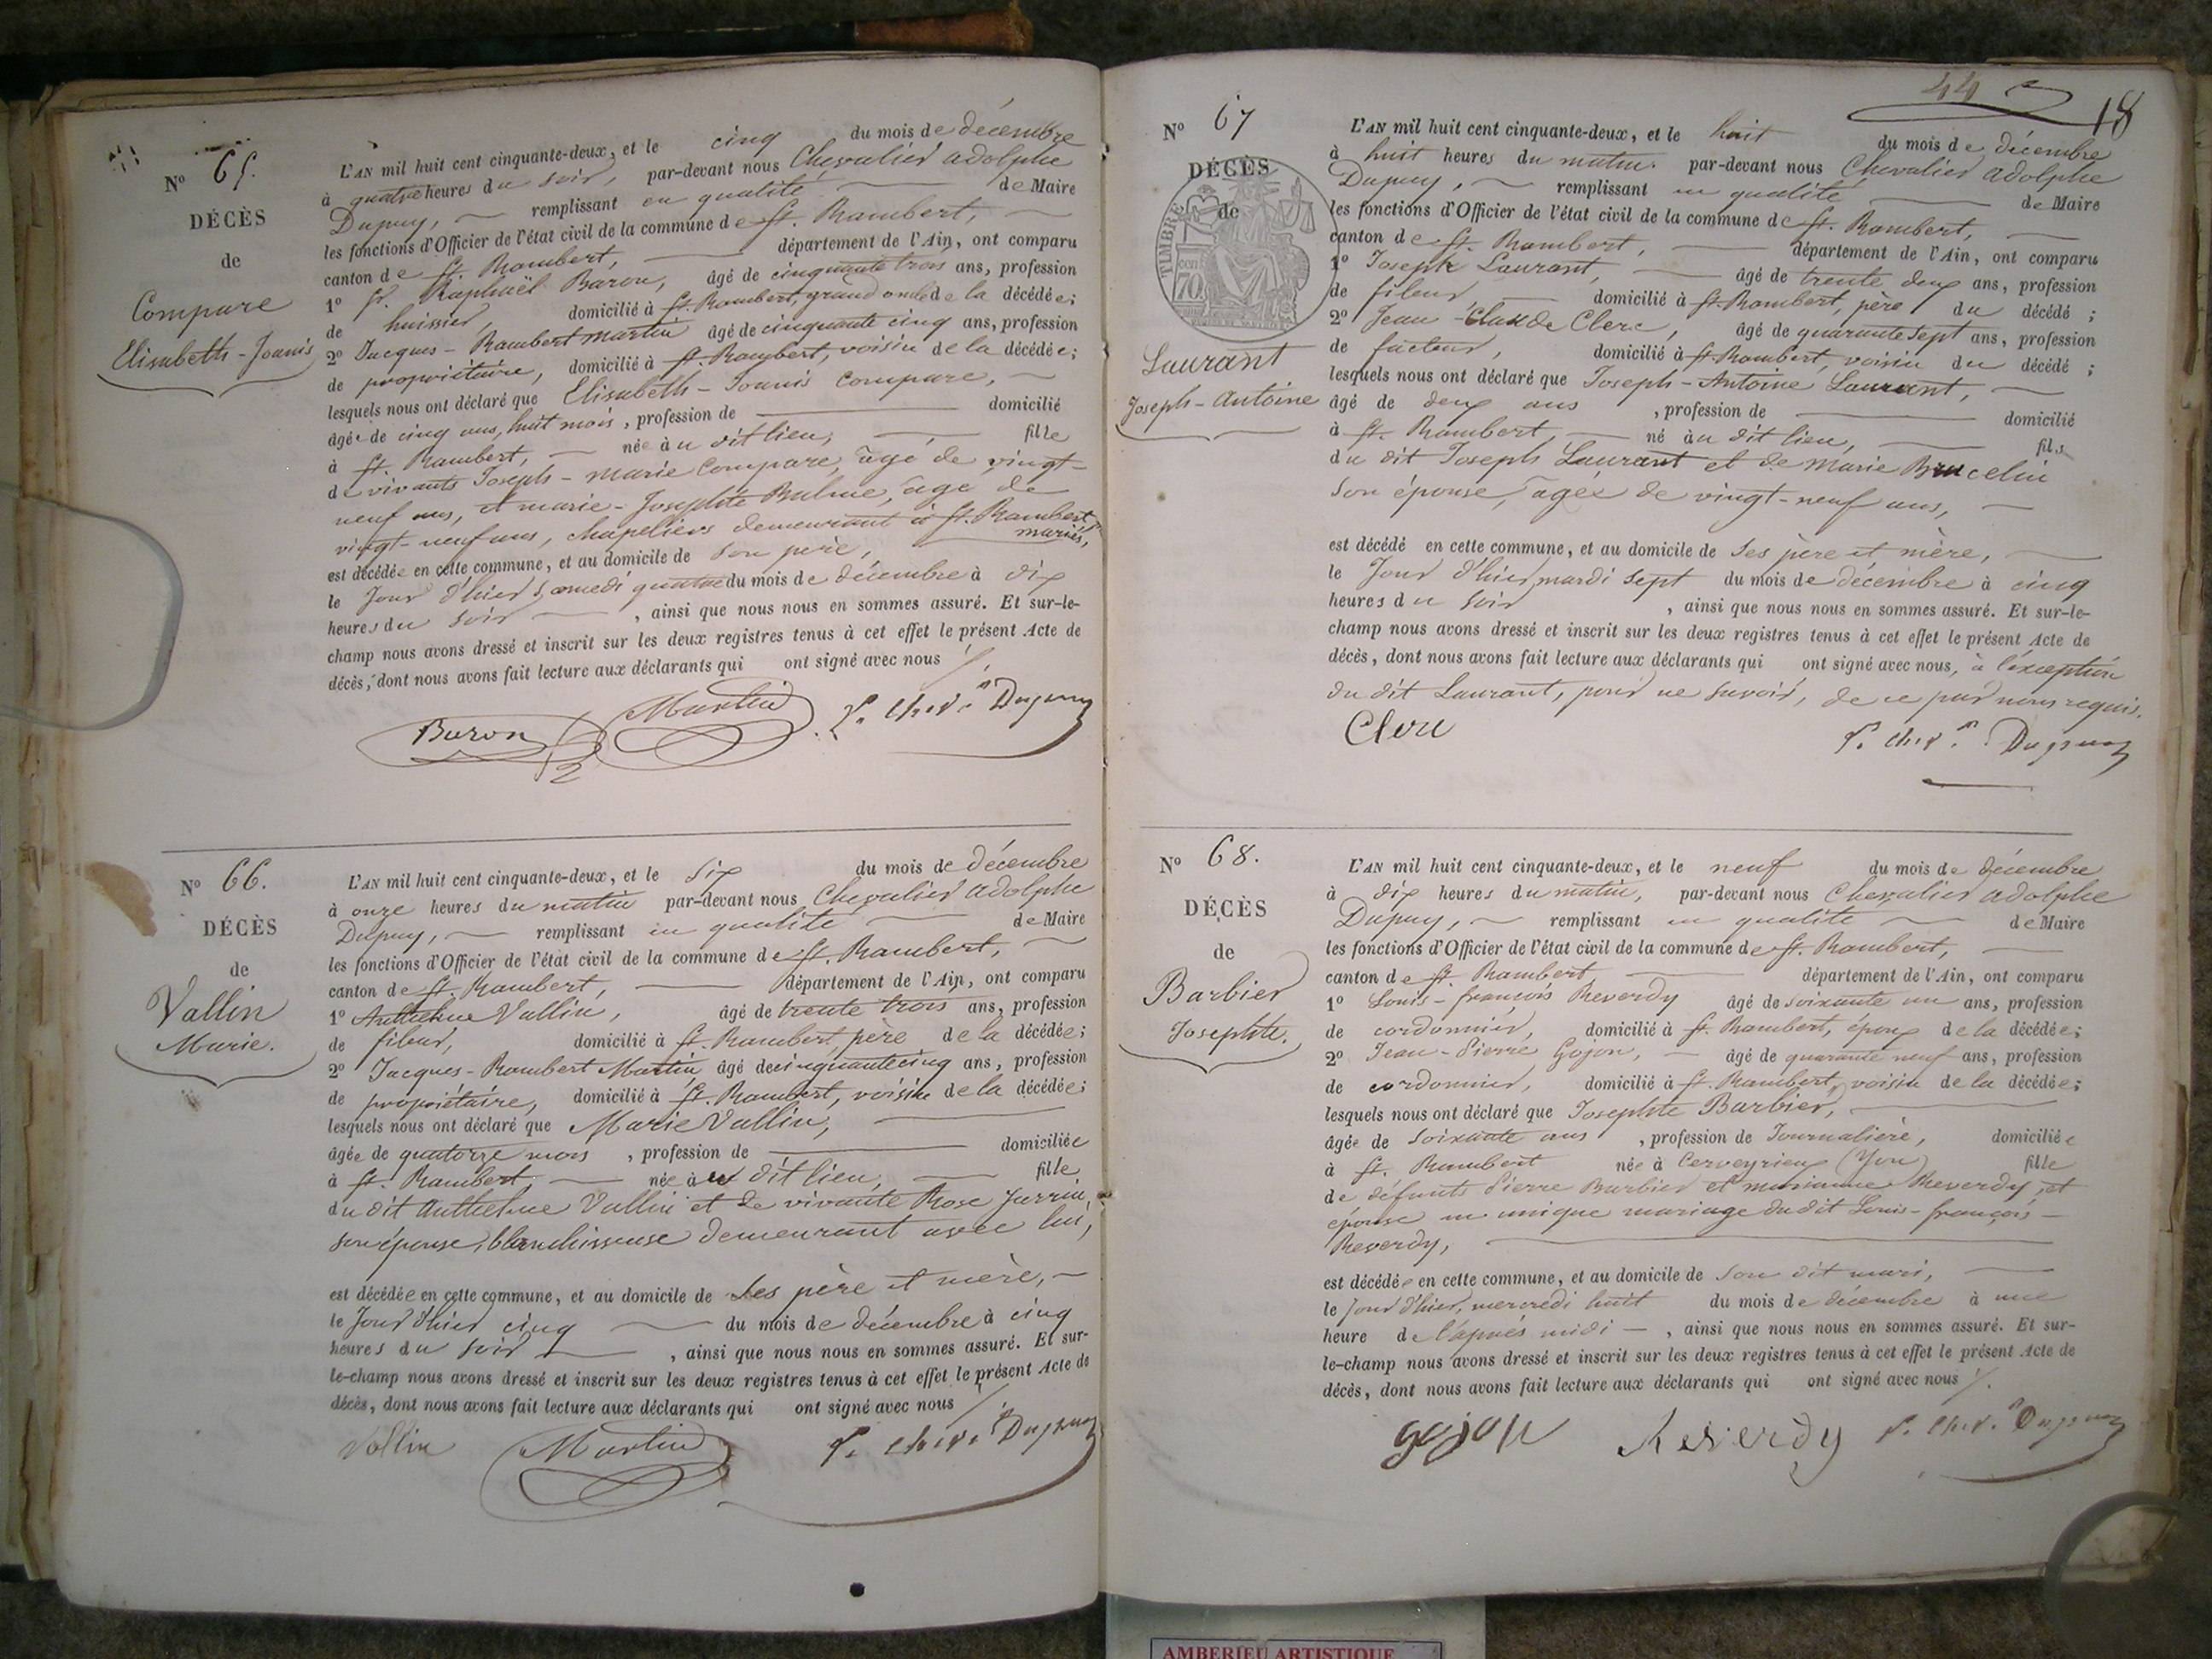 N° 65.
DÉCÈS
de
Compare
Elisabeth-Joanis
L'AN mil huit cent cinquante-deux, et le cinq du mois de décembre
à quatre heures du soir, par-devant nous Chevalier adolphe
Dupuy, remplissant en qualité de Maire
les fonctions d'Officier de l'état civil de la commune de St. Rambert,
canton de St. Rambert, département de l'Ain, ont comparu
1° Sr. Raphaël Baron, âgé de cinquante trois ans, profession
de huissier, domicilié à St. Rambert, grand oncle de la décédée;
2° Jacques-Rambert Martin âgé de cinquante cinq ans, profession
de propriétaire, domicilié à St. Rambert, voisin de la décédée;
lesquels nous ont déclaré que Elisabeth-Joanis Compare,
âgée de cinq ans, huit mois, profession de domicilié
à St. Rambert, née à u dit lieu, fille
de vivants Joseph-marie Compare, âgé de vingt-
neuf ans, et marie-Josephte Bulme, âgé de
vingt-neuf ans, chapeliers demeurant à St. Rambert
mariés,
est décédée en cette commune, et au domicile de son père,
le Jour d'hier samedi quatre du mois de décembre à dix
heures du soir, ainsi que nous nous en sommes assuré. Et sur-le-
champ nous avons dressé et inscrit sur les deux registres tenus à cet effet le présent Acte de
décès, dont nous avons fait lecture aux déclarants qui ont signé avec nous /.
Baron Martin Dupuy
N° 66.
DÉCÈS
de
Vallin
Marie.
L'AN mil huit cent cinquante-deux, et le six du mois de décembre
à onze heures du matin par-devant nous Chevalier adolphe
Dupuy, remplissant en qualité de Maire
les fonctions d'Officier de l'état civil de la commune de St. Rambert,
canton de St. Rambert, département de l'Ain, ont comparu
1° Anthelme Vallin, âgé de trente trois ans, profession
de fileur, domicilié à St. Rambert, père de la décédée;
2° Jacques-Rambert Martin, âgé de cinquante cinq ans, profession
de propriétaire, domicilié à St. Rambert, voisin de la décédée;
lesquels nous ont déclaré que Marie Vallin,
âgée de quatorze mois, profession de domiciliée
à St. Rambert, née à u dit lieu, fille
du dit Anthelme Vallin et de vivante Rose Jarrin,
son épouse, blanchisseuse demeurant avec lui,
est décédée en cette commune, et au domicile de ses père et mère,
le Jour d'hier cinq du mois de décembre à cinq
heures du soir, ainsi que nous nous en sommes assuré. Et sur-
le-champ nous avons dressé et inscrit sur les deux registres tenus à cet effet le présent Acte de
décès, dont nous avons fait lecture aux déclarants qui ont signé avec nous /.
Vollin Martin Dupuy
44
18
N° 67
DÉCÈS
de
TIMBRE
70
Laurant
Joseph-Antoine
L'AN mil huit cent cinquante-deux, et le huit du mois de décembre
à huit heures du matin. par-devant nous Chevalier adolphe
Dupuy, remplissant en qualité de Maire
les fonctions d'Officier de l'état civil de la commune de St. Rambert,
canton de St. Rambert, département de l'Ain, ont comparu
1° Joseph Laurant, âgé de trente deux ans, profession
de fileur domicilié à St. Rambert, père du décédé;
2° Jean-Claude Clerc, âgé de quarante sept ans, profession
de facteur, domicilié à St Rambert, voisin du décédé;
lesquels nous ont déclaré que Joseph-Antoine Laurant,
âgé de deux ans, profession de domicilié
à St. Rambert, né à u dit lieu, fils
du dit Joseph Laurant et de Marie Brucelin
son épouse, âgée de vingt-neuf ans,
est décédé en cette commune, et au domicile de ses père et mère,
le Jour d'hier, mardi sept du mois de décembre à cinq
heures du soir, ainsi que nous nous en sommes assuré. Et sur-le-
champ nous avons dressé et inscrit sur les deux registres tenus à cet effet le présent Acte de
décès, dont nous avons fait lecture aux déclarants qui ont signé avec nous, à l'exception
du dit Laurant, pour ne savoir, de ce par nous requis.
Clerc Dupuy
N° 68.
DÉCÈS
de
Barbier
Josephte.
L'AN mil huit cent cinquante-deux, et le neuf du mois de décembre
à dix heures du matin, par-devant nous Chevalier adolphe
Dupuy, remplissant en qualité de Maire
les fonctions d'Officier de l'état civil de la commune de St. Rambert,
canton de St. Rambert département de l'Ain, ont comparu
1° Louis-françois Reverdy âgé de soixante un ans, profession
de cordonnier, domicilié à St. Rambert, époux de la décédée;
2° Jean-Pierre Gojon, âgé de quarante neuf ans, profession
de cordonnier, domicilié à St. Rambert, voisin de la décédée;
lesquels nous ont déclaré que Josephte Barbier,
âgée de soixante ans, profession de Journalière, domiciliée
à St. Rambert née à Cerveyrieux (Yon) fille
de défunts Pierre Barbier et marianne Reverdy, et
épouse en unique mariage du dit Louis-françois-
Reverdy,
est décédée en cette commune, et au domicile de son dit mari,
le Jour d'hier, mercredi huit du mois de décembre à une
heure de l'après midi, ainsi que nous nous en sommes assuré. Et sur-
le-champ nous avons dressé et inscrit sur les deux registres tenus à cet effet le présent Acte de
décès, dont nous avons fait lecture aux déclarants qui ont signé avec nous /.
gojon Reverdy Dupuy
AMBERIEU ARTISTIQUE